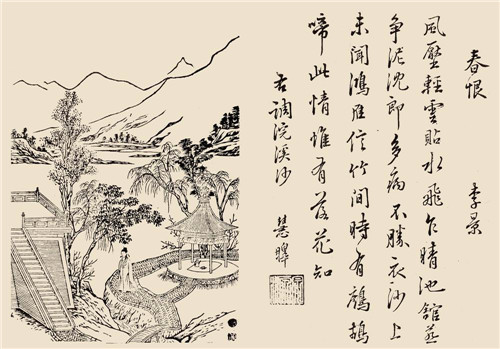 春恨 李景
風壓輕雲貼水飛乍晴池館燕
争泥沈郎多病不勝衣沙上
未聞鴻雁信竹間時有鷓鴣
啼此情惟有落花知
右調浣溪沙